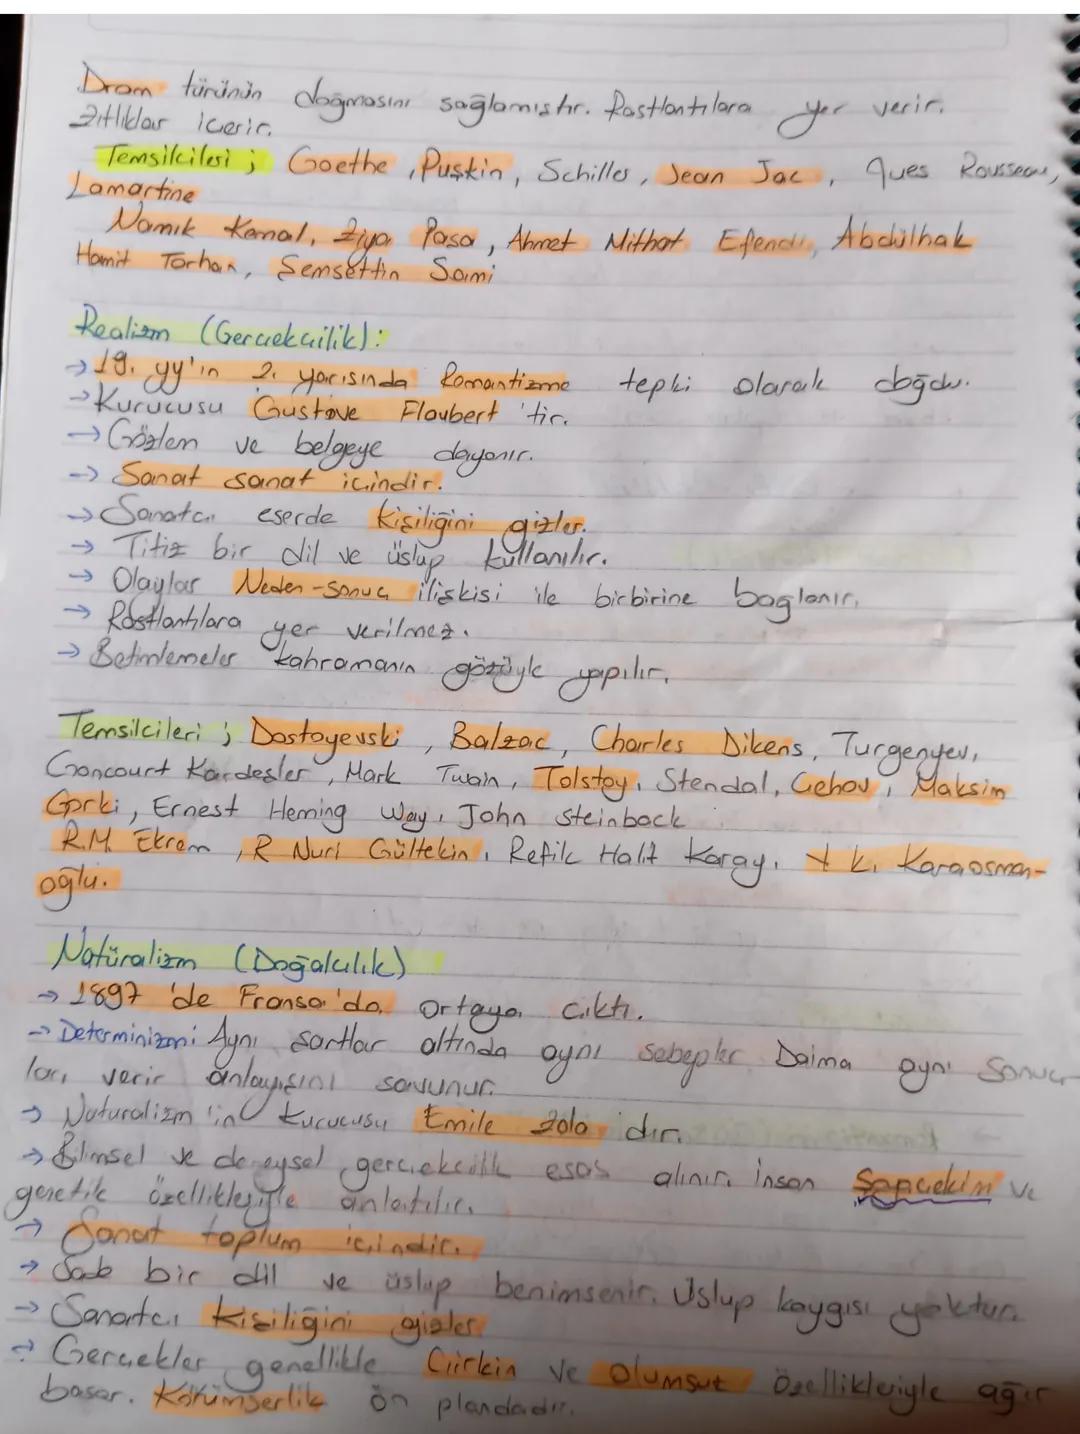 Dram türünün doğmasını sağlamıştır. Rastlantılara yer verir.
Zıtlıklar içerir.
Temsilcileri ; Goethe , Puşkin , Schiller , Jean Jac , ques Rousseau,
Lamartine
Namık Kemal, Ziya Paşa , Ahmet Mithat Efendi, Abdülhak
Hamit Tarhan, Şemsettin Sami
Realizm (Gerçekçilik):
→ 19. yy'ın 2. yarısında Romantizme tepki olarak doğdu.
→ Kurucusu Gustave Flaubert 'tir.
→ Gözlem ve belgeye dayanır.
→ Sanat sanat içindir.
→ Sanatçı eserde kişiliğini gizler.
→ Titiz bir dil ve üslup kullanılır.
→ Olaylar Neden-sonuç ilişkisi ile birbirine bağlanır.
→ Rastlantılara yer verilmez.
→ Betimlemeler kahramanın gözüyle yapılır.
Temsilcileri ; Dostoyevski , Balzac , Charles Dikens, Turgenyev,
Goncourt Kardeşler , Mark Twain , Tolstoy, Stendal, Çehov , Maksim
Gorki , Ernest Heming Way, John steinbock
R.M. Ekrem , R Nuri Gültekin , Refik Halit Karay, Y. K. Karaosman-
oğlu.
Natüralizm (Doğalcılık)
→ 1897 'de Fransa'da ortaya çıktı.
→ Determinizmi Aynı şartlar altında aynı sebepler Daima aynı Sonuç
ları verir anlayışını savunur.
→ Naturalizm 'in kurucusu Emile Zola 'dır.
→ Bilimsel ve deneysel gerçekçilik esas alınır. İnsan Soyaçekim ve
genetik özellikleriyle anlatılır.
→ Sanat toplum içindir.
→ Sade bir dil ve üslup benimsenir. Üslup kaygısı yoktur.
→ Sanatçı kişiliğini gizler
→ Gerçekler genellikle Çirkin ve Olumsuz özellikleriyle ağır
basar. Kötümserlik ön plandadır.